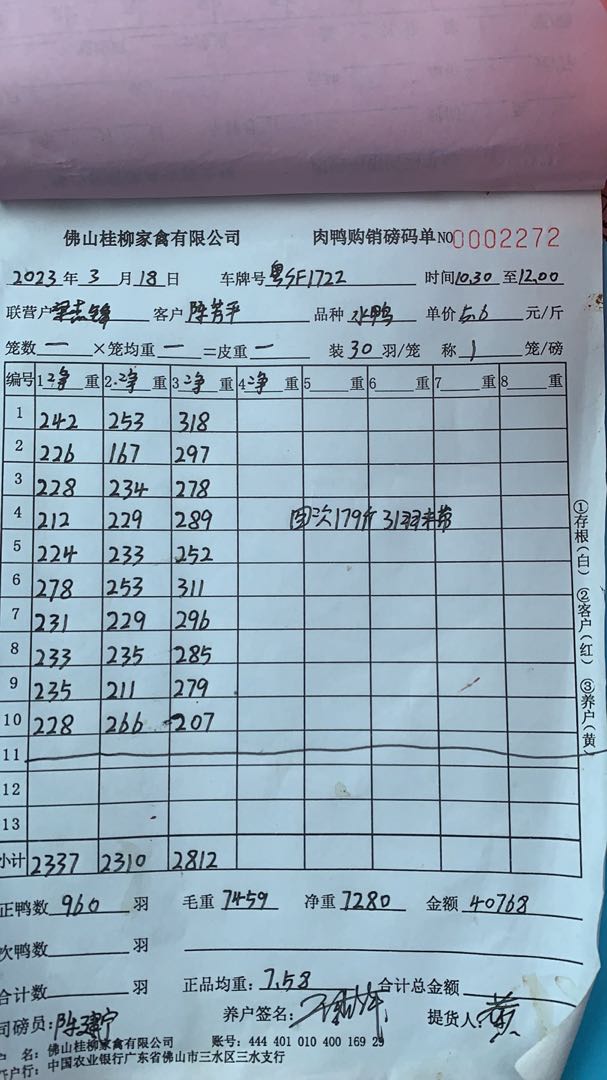 佛山桂柳家禽有限公司 肉鸭购销磅码单NO 0002272
2023年3月18日 车牌号 粤SF1722 时间10.30至12.00
联营户 客户 陈芳平 品种 水鸭 单价5.6元/斤
笼数 一 ×笼均重 一 =皮重 一 装30羽/笼 称1笼/磅
编号 1净重 2.净重 3净重 4净重 5 重 6 重 7 重 8 重
1 242 253 318
2 226 167 297
3 228 234 278
4 212 229 289 回次179斤 31羽未带
5 224 233 252
6 278 253 311
7 231 229 296
8 233 235 285
9 235 211 279
10 228 266 207
11
12
13
小计 2337 2310 2812
正鸭数 960 羽 毛重 7459 净重 7280 金额 40768
次鸭数 羽
合计数 羽 正品均重: 7.58 合计总金额
司磅员: 陈建宁 养户签名: 提货人: 黄
户 名: 佛山桂柳家禽有限公司 账号: 444 401 010 400 169 29
户行: 中国农业银行广东省佛山市三水区三水支行
①存根(白) ②客户(红) ③养户(黄)